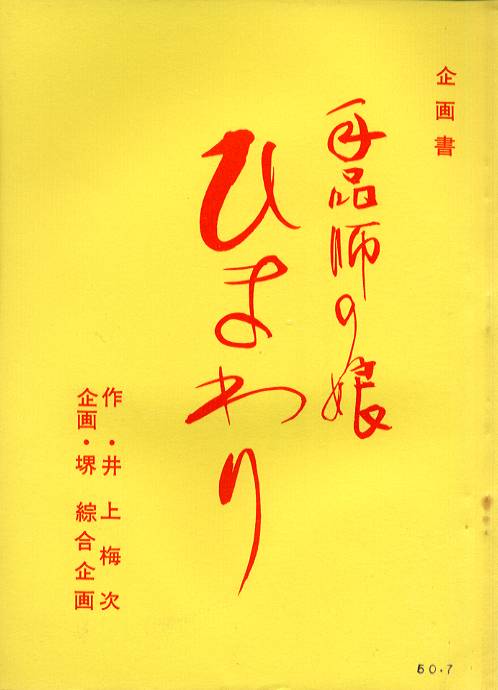 企画書
手品師の娘
ひまわり
作・井上梅次
企画・堺 綜合企画
50.7